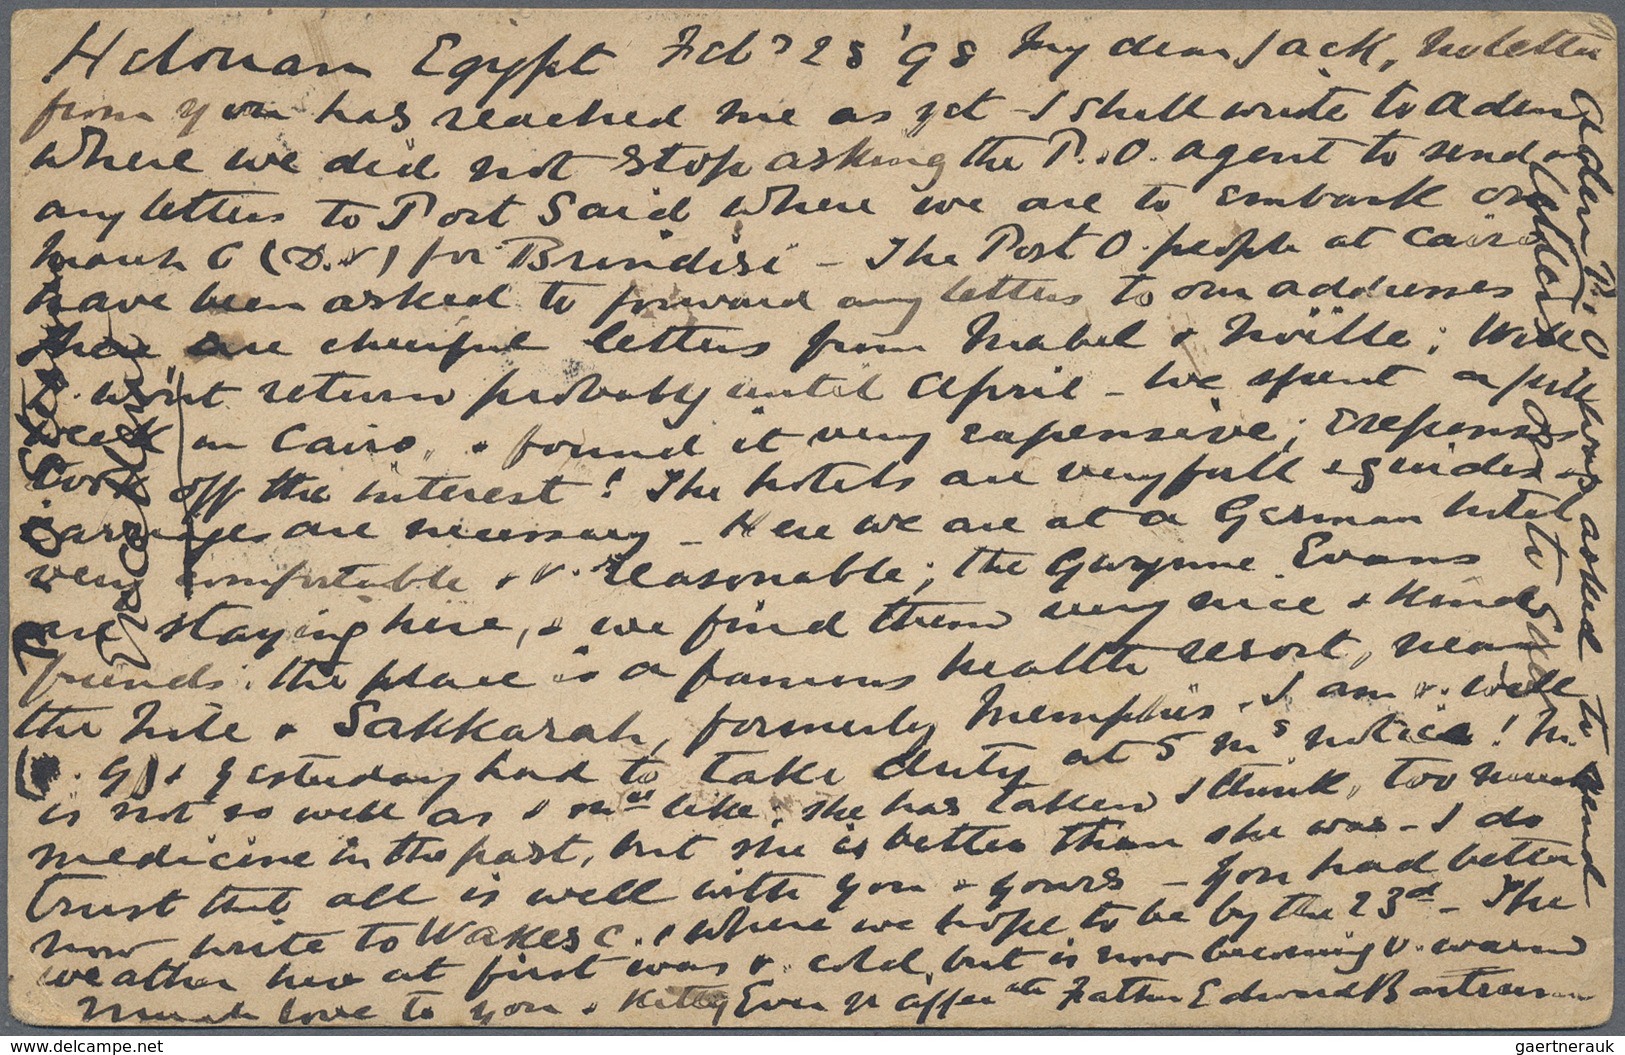 Helouan Egypt Feb 28 '98 My dear Jack, No letter
from you has reached me as yet - I shall write to Aden
where we did not stop asking the P.&O. agent to send on
any letters to Port Said where we are to embark on
March 6 (D.V) for Brindisi - The Post O. people at Cairo
have been asked to forward any letters to our addresses
There are cheerful letters from Mabel & Neville; Will
won't return probably until April - We spent a full
week in Cairo, & found it very expensive; expenses
took off the interest! The hotels are very full & guides &
carriages are necessary - Here we are at a German hotel
very comfortable & v. reasonable; the Gwynne Evans
are staying here, & we find them very nice & kind
friends. The place is a famous health resort, near
the Nile & Sakkarah, formerly Memphis. I am v. well
(D. G) & yesterday had to take duty at 5 ms notice! M.
is not so well as I like. She has taken I think, too much
medicine in the past, but she is better than she was - I do
trust that all is well with you & yours - You had better
now write to Wakes C. where we hope to be by the 23d - The
weather here at first was v. cold, but is now becoming v. warm
Much love to you & Kitty Ever yr affec ate Father Edward Bartrum
Aden P. & O asked to send
letters to
delcampe.net
gaertnerauk